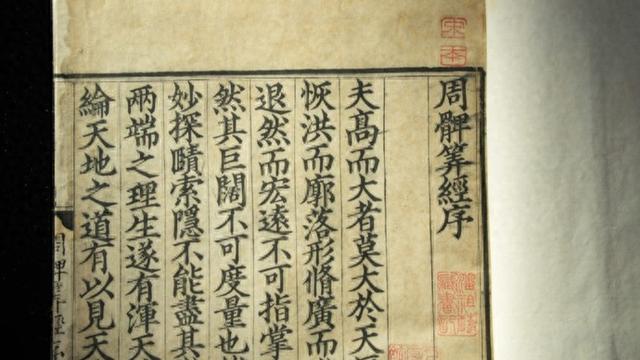 宋本
周髀筭經序
夫髙而大者莫大於天
恢洪而廓落形脩廣而
退然而宏遠不可指掌
然其巨闊不可度量也
妙探賾索隱不能盡其
兩端之理生遂有渾天
綸天地之道有以見天